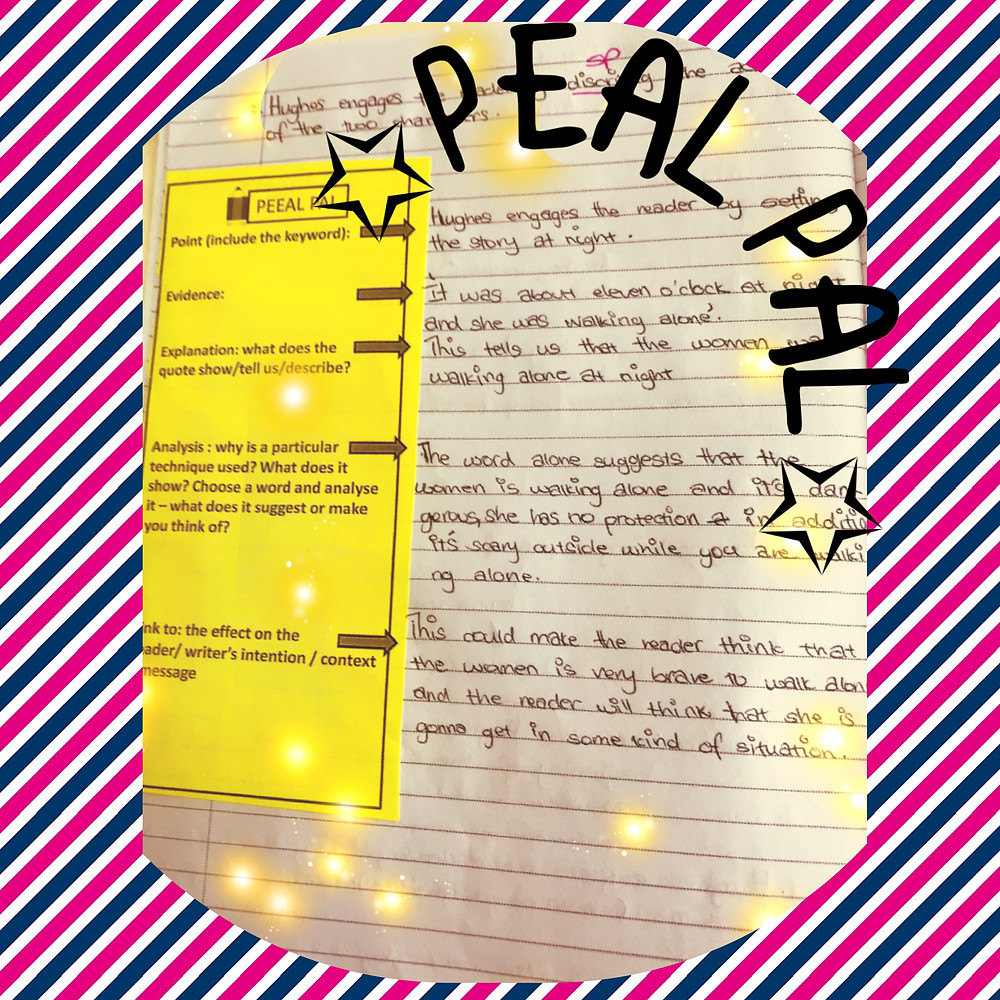 PEAL PAL
sp
Hughes engages the
of the two
PEEAL
Point (include the keyword):
Evidence:
Explanation: what does the
quote show/tell us/describe?
Analysis : why is a particular
technique used? What does it
show? Choose a word and analyse
it – what does it suggest or make
you think of?
nk to: the effect on the
ader/ writer's intention / context
message
Hughes engages the reader by setting
the story at night .
'It was about eleven o'clock at night
and she was walking alone'.
This tells us that the women
walking alone at night
The word alone suggests that the
women is walking alone and it's dan-
gerous, she has no protection in additio
it's scary outside while you are walki
ng alone.
This could make the reader think that
the women is very brave to walk alon
and the reader will think that she is
gonna get in some kind of situation.